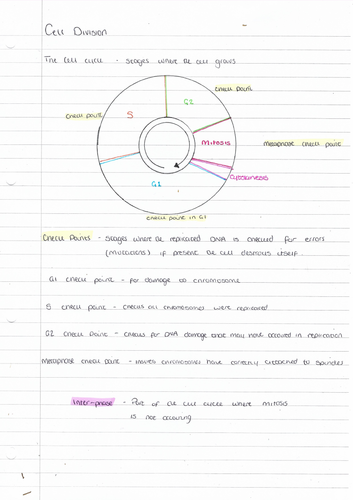 Cell Division
The cell cycle - stages where the cell grows
check point
G2
check point
S
Mitosis
Metaphase check point
Cytokinesis
G1
check point in G1
Check Points - Stages where the replicated DNA is checked for errors
(mutations) if present the cell destroys itself.
G1 check point - for damage to chromosome
S check point - checks all chromosomes were replicated
G2 check point - checks for DNA damage that may have occured in replication
Metaphase check point - insures chromosomes have correctly attached to spindles
Inter-phase - Part of the cell cycle where mitosis
is not occuring
1